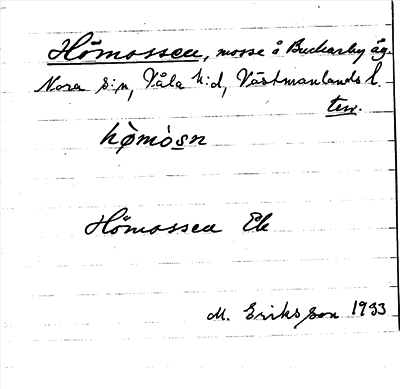 Hömossen, mosse å Buckarby äg.
Nora s:n, Våla h:d, Västmanlands l.
terr.
hö̀mòsn
Hömossen Ek
M. Eriksson 1933